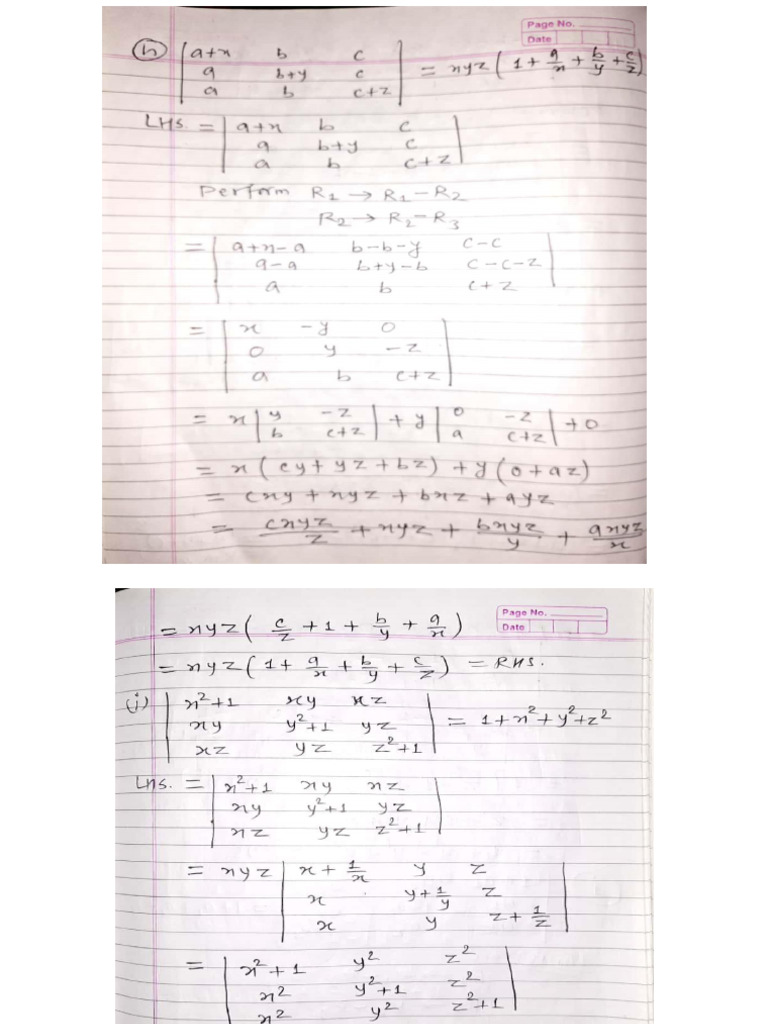 Page No.
Date
(h) | a+x b c |
| a b+y c | = xyz ( 1 + a/x + b/y + c/z )
| a b c+z |
LHS. = | a+x b c |
| a b+y c |
| a b c+z |
Perform R1 → R1 – R2
R2 → R2 – R3
= | a+x–a b–b–y c–c |
| a–a b+y–b c–c–z |
| a b c+z |
= | x –y 0 |
| 0 y –z |
| a b c+z |
= x | y –z | + y | 0 –z | + 0
| b c+z | | a c+z |
= x ( cy + yz + bz ) + y ( 0 + az )
= cxy + xyz + bxz + ayz
= cxyz/z + xyz + bxyz/y + axyz/x
Page No.
Date
= xyz ( c/z + 1 + b/y + a/x )
= xyz ( 1 + a/x + b/y + c/z ) = RHS.
(j) | x²+1 xy xz |
| xy y²+1 yz | = 1+x²+y²+z²
| xz yz z²+1 |
LHS. = | x²+1 xy xz |
| xy y²+1 yz |
| xz yz z²+1 |
= xyz | x + 1/x y z |
| x y + 1/y z |
| x y z + 1/z |
= | x²+1 y² z² |
| x² y²+1 z² |
| x² y² z²+1 |